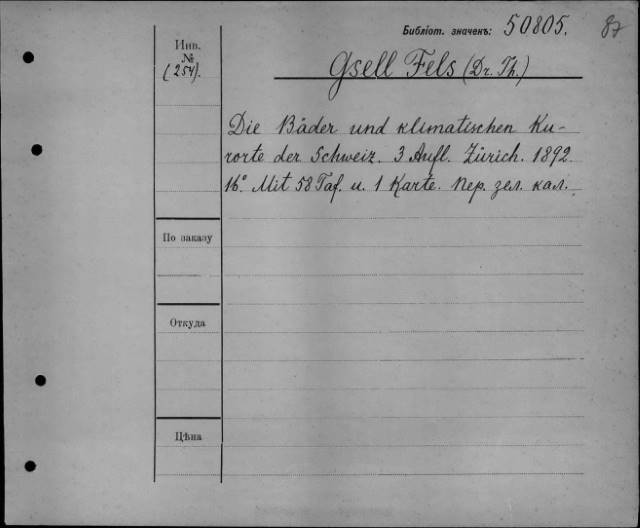 Библіот. значекъ: 50805. 87
Инв.
№
(254).
Gsell Fels (Dr. Th.)
Die Bäder und klimatischen Ku-
rorte der Schweiz. 3 Aufl. Zürich. 1892.
16° Mit 58 Taf. u. 1 Karte. Пер. зел. кал.
По заказу
Откуда
Цѣна